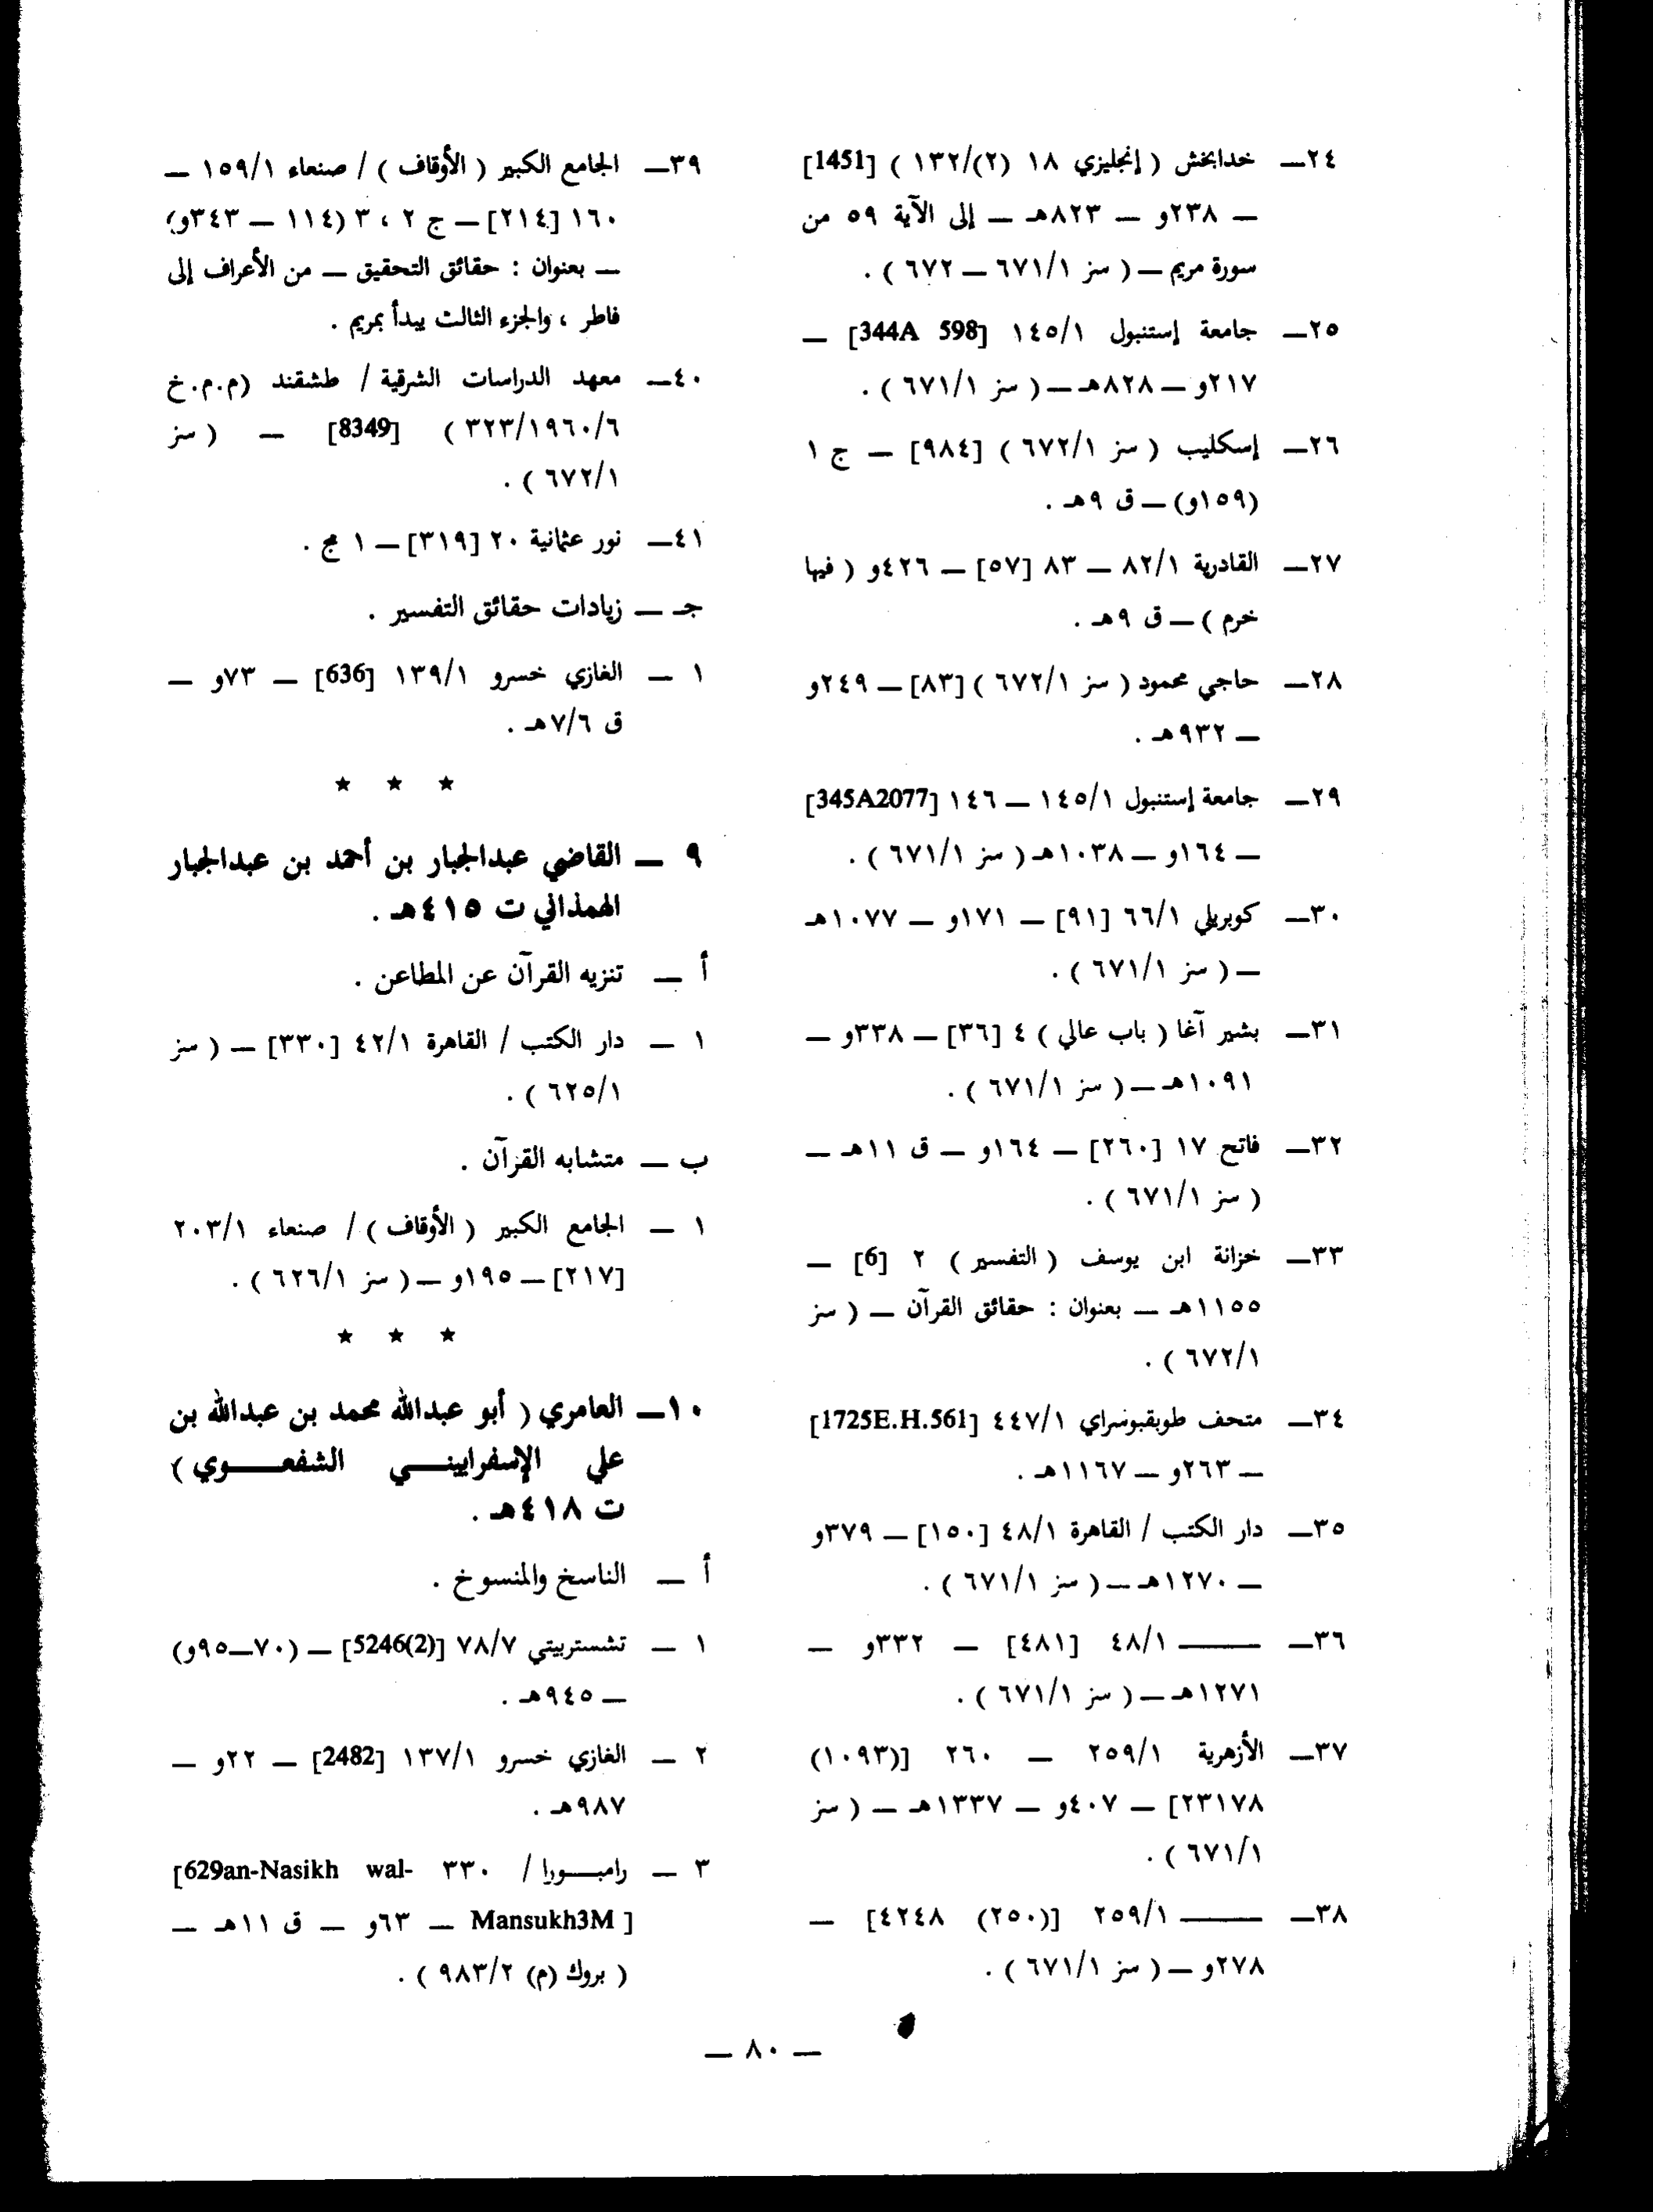 ٢٤ــ خدابخش ( إنجليزي ١٨ (٢)/١٣٢ ) [1451]
ــ ٢٣٨و ــ ٨٢٣هـ ــ إلى الآية ٥٩ من
سورة مريم ــ ( سز ٦٧١/١ ــ ٦٧٢ ) .
٢٥ــ جامعة إستنبول ١٤٥/١ [344A 598] ــ
٢١٧و ــ ٨٢٨هـ ــ ( سز ٦٧١/١ ) .
٢٦ــ إسكليب ( سز ٦٧٢/١ ) [٩٨٤] ــ ج ١
(١٥٩و) ــ ق ٩هـ .
٢٧ــ القادرية ٨٢/١ ــ ٨٣ [٥٧] ــ ٤٢٦و ( فيها
خرم ) ــ ق ٩هـ .
٢٨ــ حاجي محمود ( سز ٦٧٢/١ ) [٨٣] ــ ٢٤٩و
ــ ٩٣٢هـ .
٢٩ــ جامعة إستنبول ١٤٥/١ ــ ١٤٦ [345A2077]
ــ ١٦٤و ــ ١٠٣٨هـ ( سز ٦٧١/١ ) .
٣٠ــ كوبريلي ٦٦/١ [٩١] ــ ١٧١و ــ ١٠٧٧هـ
ــ ( سز ٦٧١/١ ) .
٣١ــ بشير آغا ( باب عالي ) ٤ [٣٦] ــ ٣٣٨و ــ
١٠٩١هـ ــ ( سز ٦٧١/١ ) .
٣٢ــ فاتح ١٧ [٢٦٠] ــ ١٦٤و ــ ق ١١هـ ــ
( سز ٦٧١/١ ) .
٣٣ــ خزانة ابن يوسف ( التفسير ) ٢ [6] ــ
١١٥٥هـ ــ بعنوان : حقائق القرآن ــ ( سز
٦٧٢/١ ) .
٣٤ــ متحف طوبقبوسراي ٤٤٧/١ [1725E.H.561]
ــ ٢٦٣و ــ ١١٦٧هـ .
٣٥ــ دار الكتب / القاهرة ٤٨/١ [١٥٠] ــ ٣٧٩و
ــ ١٢٧٠هـ ــ ( سز ٦٧١/١ ) .
٣٦ــ ــــــ ٤٨/١ [٤٨١] ــ ٣٣٢و ــ
١٢٧١هـ ــ ( سز ٦٧١/١ ) .
٣٧ــ الأزهرية ٢٥٩/١ ــ ٢٦٠ [(١٠٩٣)
٢٣١٧٨] ــ ٤٠٧و ــ ١٣٣٧هـ ــ ( سز
٦٧١/١ ) .
٣٨ــ ــــــ ٢٥٩/١ [(٢٥٠) ٤٢٤٨] ــ
٢٧٨و ــ ( سز ٦٧١/١ ) .
٣٩ــ الجامع الكبير ( الأوقاف ) / صنعاء ١٥٩/١ ــ
١٦٠ [٢١٤] ــ ج ٢ ، ٣ (١١٤ ــ ٣٤٣و)
ــ بعنوان : حقائق التحقيق ــ من الأعراف إلى
فاطر ، والجزء الثالث يبدأ بمريم .
٤٠ــ معهد الدراسات الشرقية / طشقند (م.م.خ
٣٢٣/١٩٦٠/٦ ) [8349] ــ ( سز
٦٧٢/١ ) .
٤١ــ نور عثمانية ٢٠ [٣١٩] ــ ١ مج .
جـ ــ زيادات حقائق التفسير .
١ ــ الغازي خسرو ١٣٩/١ [636] ــ ٧٣و ــ
ق ٧/٦هـ .
★ ★ ★
٩ ــ القاضي عبدالجبار بن أحمد بن عبدالجبار
الهمذاني ت ٤١٥هـ .
أ ــ تنزيه القرآن عن المطاعن .
١ ــ دار الكتب / القاهرة ٤٢/١ [٣٣٠] ــ ( سز
٦٢٥/١ ) .
ب ــ متشابه القرآن .
١ ــ الجامع الكبير ( الأوقاف ) / صنعاء ٢٠٣/١
[٢١٧] ــ ١٩٥و ــ ( سز ٦٢٦/١ ) .
★ ★ ★
١٠ــ العامري ( أبو عبدالله محمد بن عبدالله بن
علي الإسفراييني الشفعوي )
ت ٤١٨هـ .
أ ــ الناسخ والمنسوخ .
١ ــ تشستربيتي ٧٨/٧ [5246(2)] ــ (٧٠ــ٩٥و)
ــ ٩٤٥هـ .
٢ ــ الغازي خسرو ١٣٧/١ [2482] ــ ٢٢و ــ
٩٨٧هـ .
٣ ــ رامبورا / ٣٣٠ [629an-Nasikh wal-
Mansukh3M ] ــ ٦٣و ــ ق ١١هـ ــ
( بروك (م) ٩٨٣/٢ ) .
ــ ٨٠ ــ